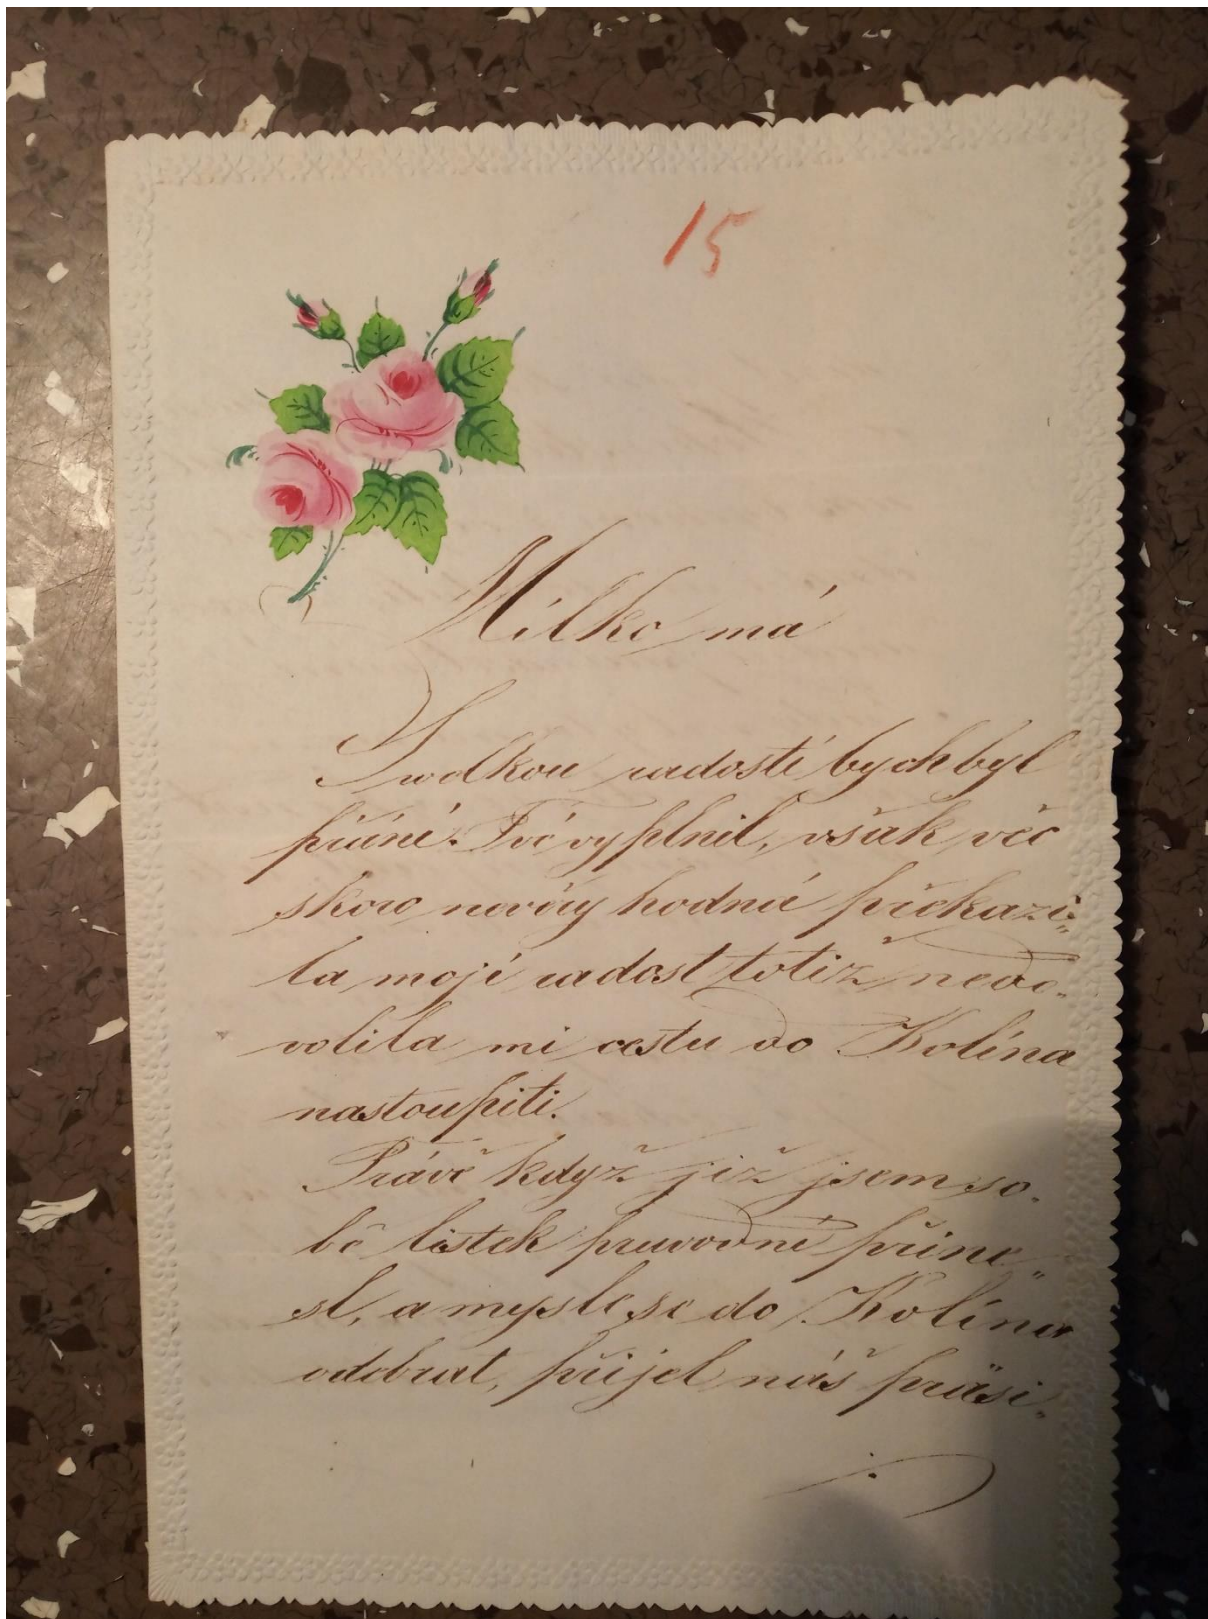 15
Milko má
S velkou radostí bych byl
přání Tvé vyplnil, však věc
skoro nevěry hodná překazi„
la mojí radost totiž nedo„
volila mi cestu do Kolína
nastoupiti.
Právě když již jsem so„
bě lístek pruvodné přine„
sl, a mysle se do Kolína
odebrat, přijel náš präsi„